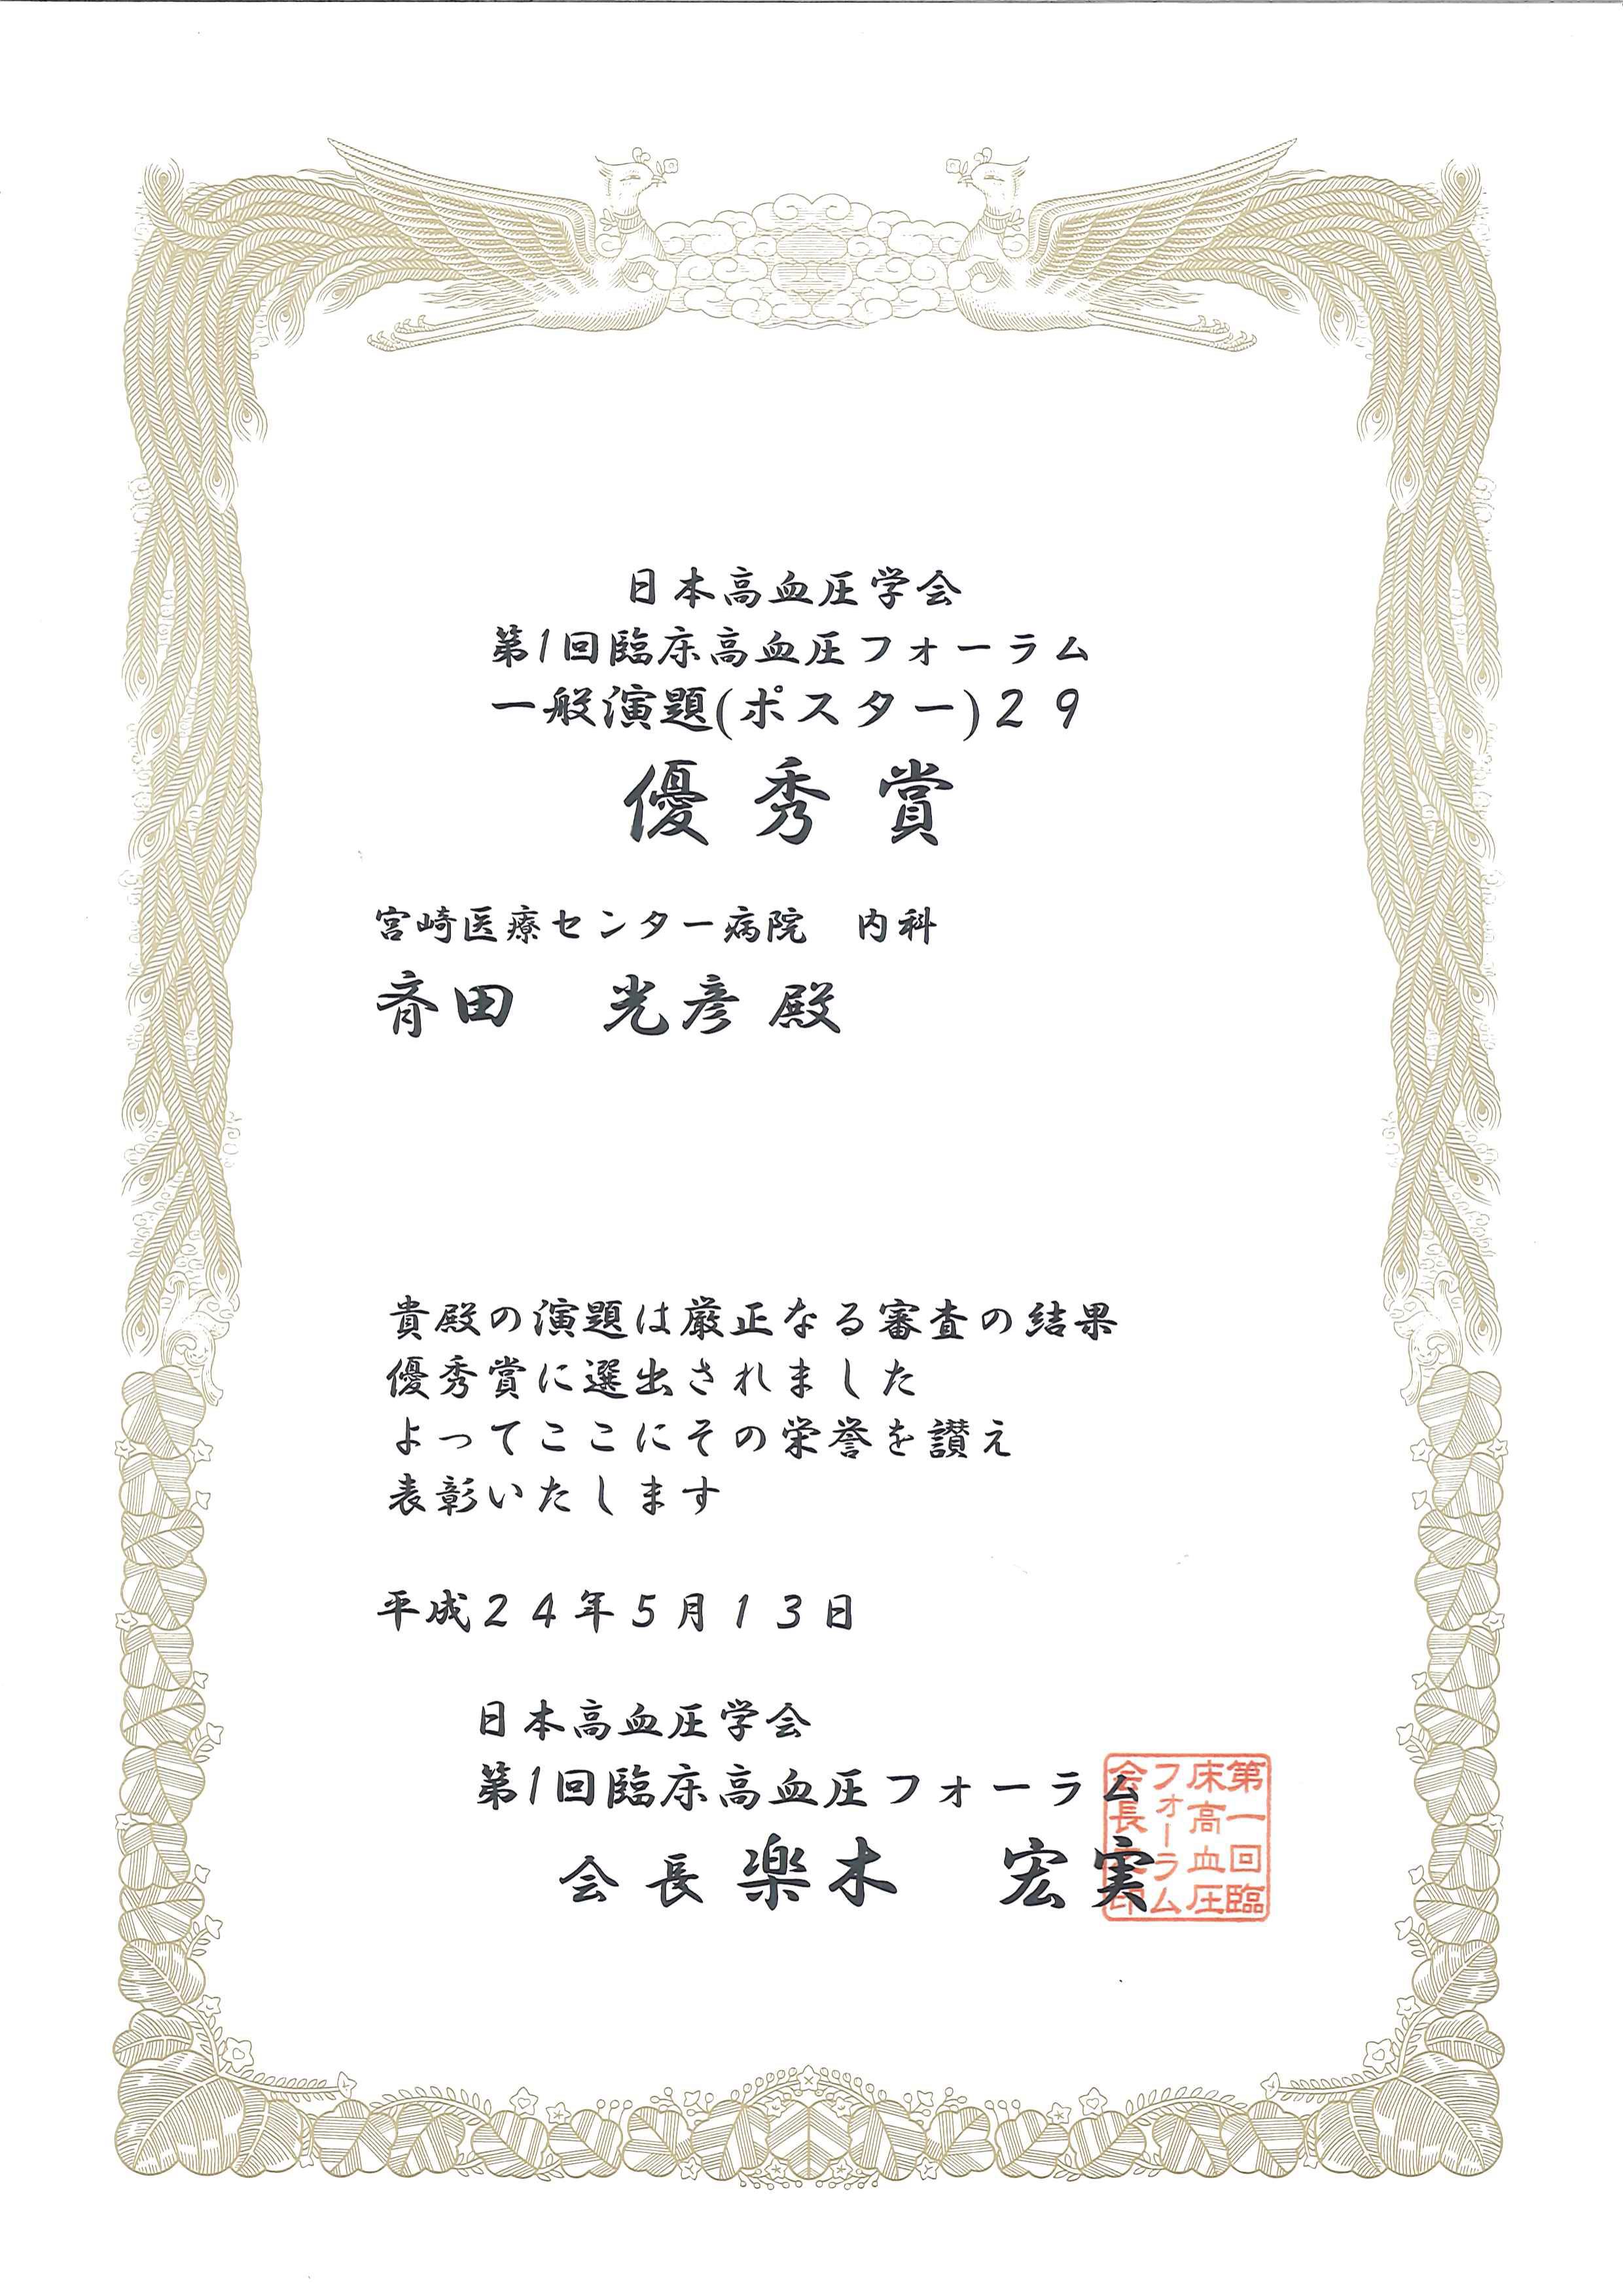 日本高血圧学会
第1回臨床高血圧フォーラム
一般演題(ポスター)２９
優秀賞
宮崎医療センター病院　内科
斉田　光彦 殿
貴殿の演題は厳正なる審査の結果
優秀賞に選出されました
よってここにその栄誉を讃え
表彰いたします
平成２４年５月１３日
日本高血圧学会
第1回臨床高血圧フォーラム
会長 楽木　宏実
第一回臨
床高血圧
フォーラム
会長之印